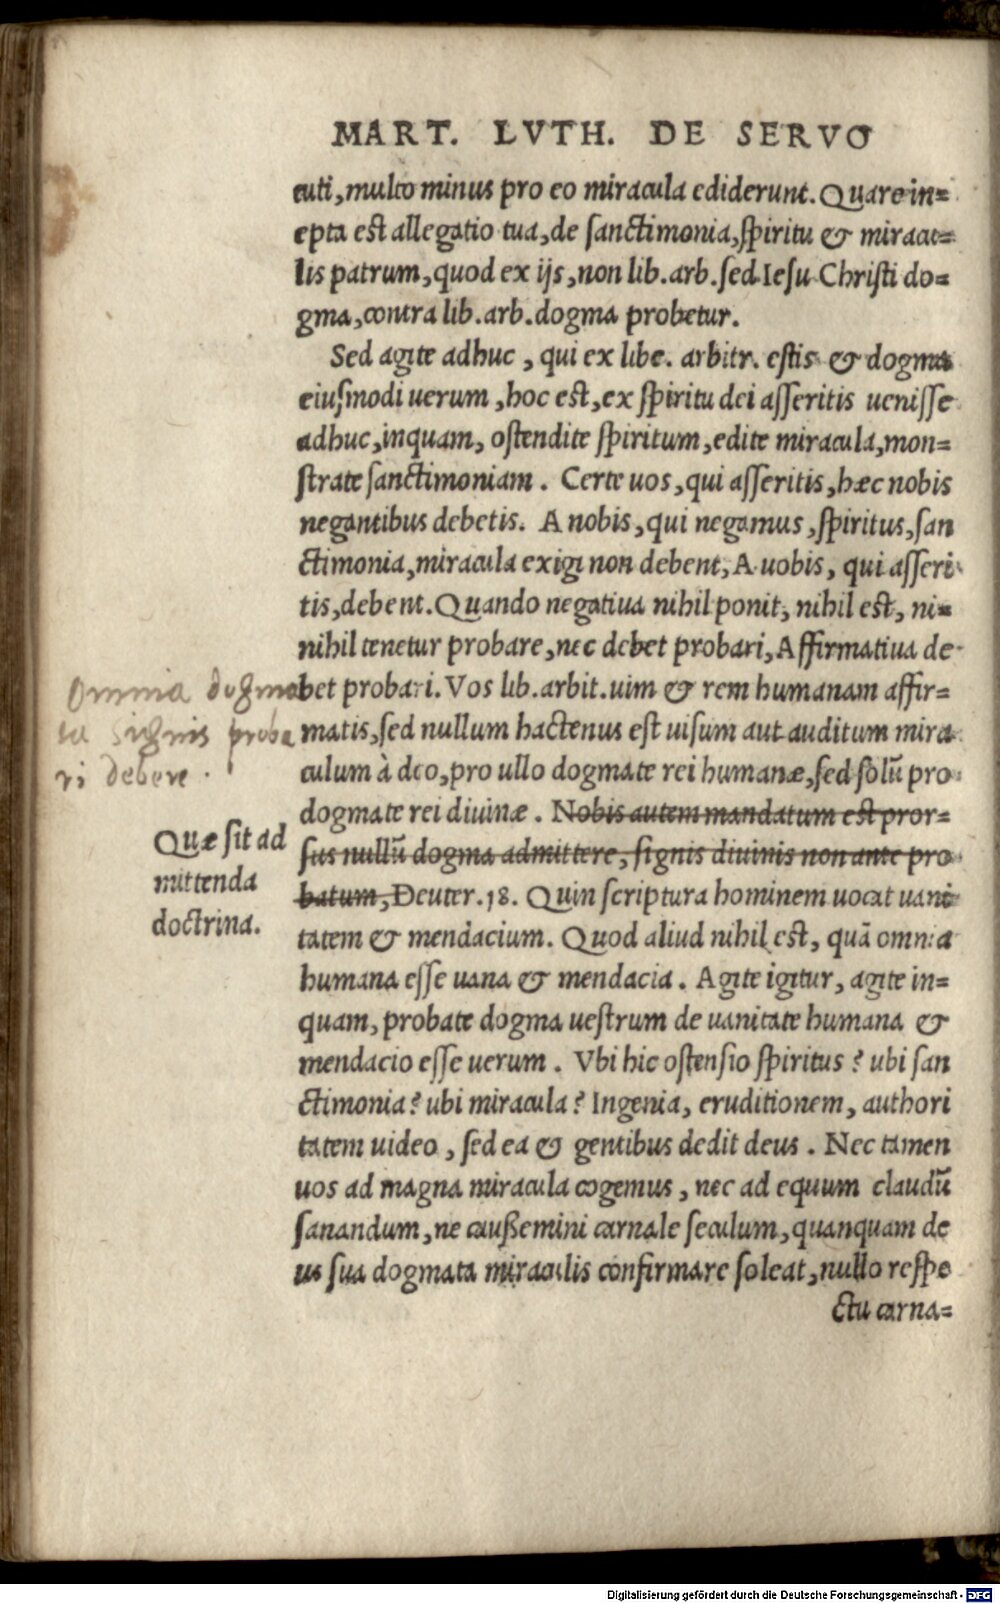 MART. LVTH. DE SERVO
cuti, multo minus pro eo miracula ediderunt. Quare in=
epta est allegatio tua, de sanctimonia, spiritu & miracu=
lis patrum, quod ex ijs, non lib. arb. sed Iesu Christi do=
gma, contra lib. arb. dogma probetur.
Sed agite adhuc, qui ex libe. arbitr. estis & dogma
eiusmodi uerum, hoc est, ex spiritu dei asseritis uenisse
adhuc, inquam, ostendite spiritum, edite miracula, mon=
strate sanctimoniam. Certe uos, qui asseritis, hæc nobis
negantibus debetis. A nobis, qui negamus, spiritus, san
ctimonia, miracula exigi non debent, A uobis, qui asseri
tis, debent. Quando negatiua nihil ponit, nihil est, ni=
nihil tenetur probare, nec debet probari, Affirmatiua de
bet probari. Vos lib. arbit. uim & rem humanam affir=
matis, sed nullum hactenus est uisum aut auditum mira
culum à deo, pro ullo dogmate rei humanæ, sed solũ pro
dogmate rei diuinæ. Nobis autem mandatum est pror=
sus nullũ dogma admittere, signis diuinis non ante pro
batum, Deuter. 18. Quin scriptura hominem uocat uani
tatem & mendacium. Quod aliud nihil est, quã omnia
humana esse uana & mendacia. Agite igitur, agite in=
quam, probate dogma uestrum de uanitate humana &
mendacio esse uerum. Vbi hic ostensio spiritus? ubi san
ctimonia? ubi miracula? Ingenia, eruditionem, authori
tatem uideo, sed ea & gentibus dedit deus. Nec tamen
uos ad magna miracula cogemus, nec ad equum claudũ
sanandum, ne caußemini carnale seculum, quanquam de
us sua dogmata miraculis confirmare soleat, nullo respe
ctu carna=
Omnia dogma
ta signis proba
ri debere.
Quæ sit ad
mittenda
doctrina.
Digitalisierung gefördert durch die Deutsche Forschungsgemeinschaft - DFG